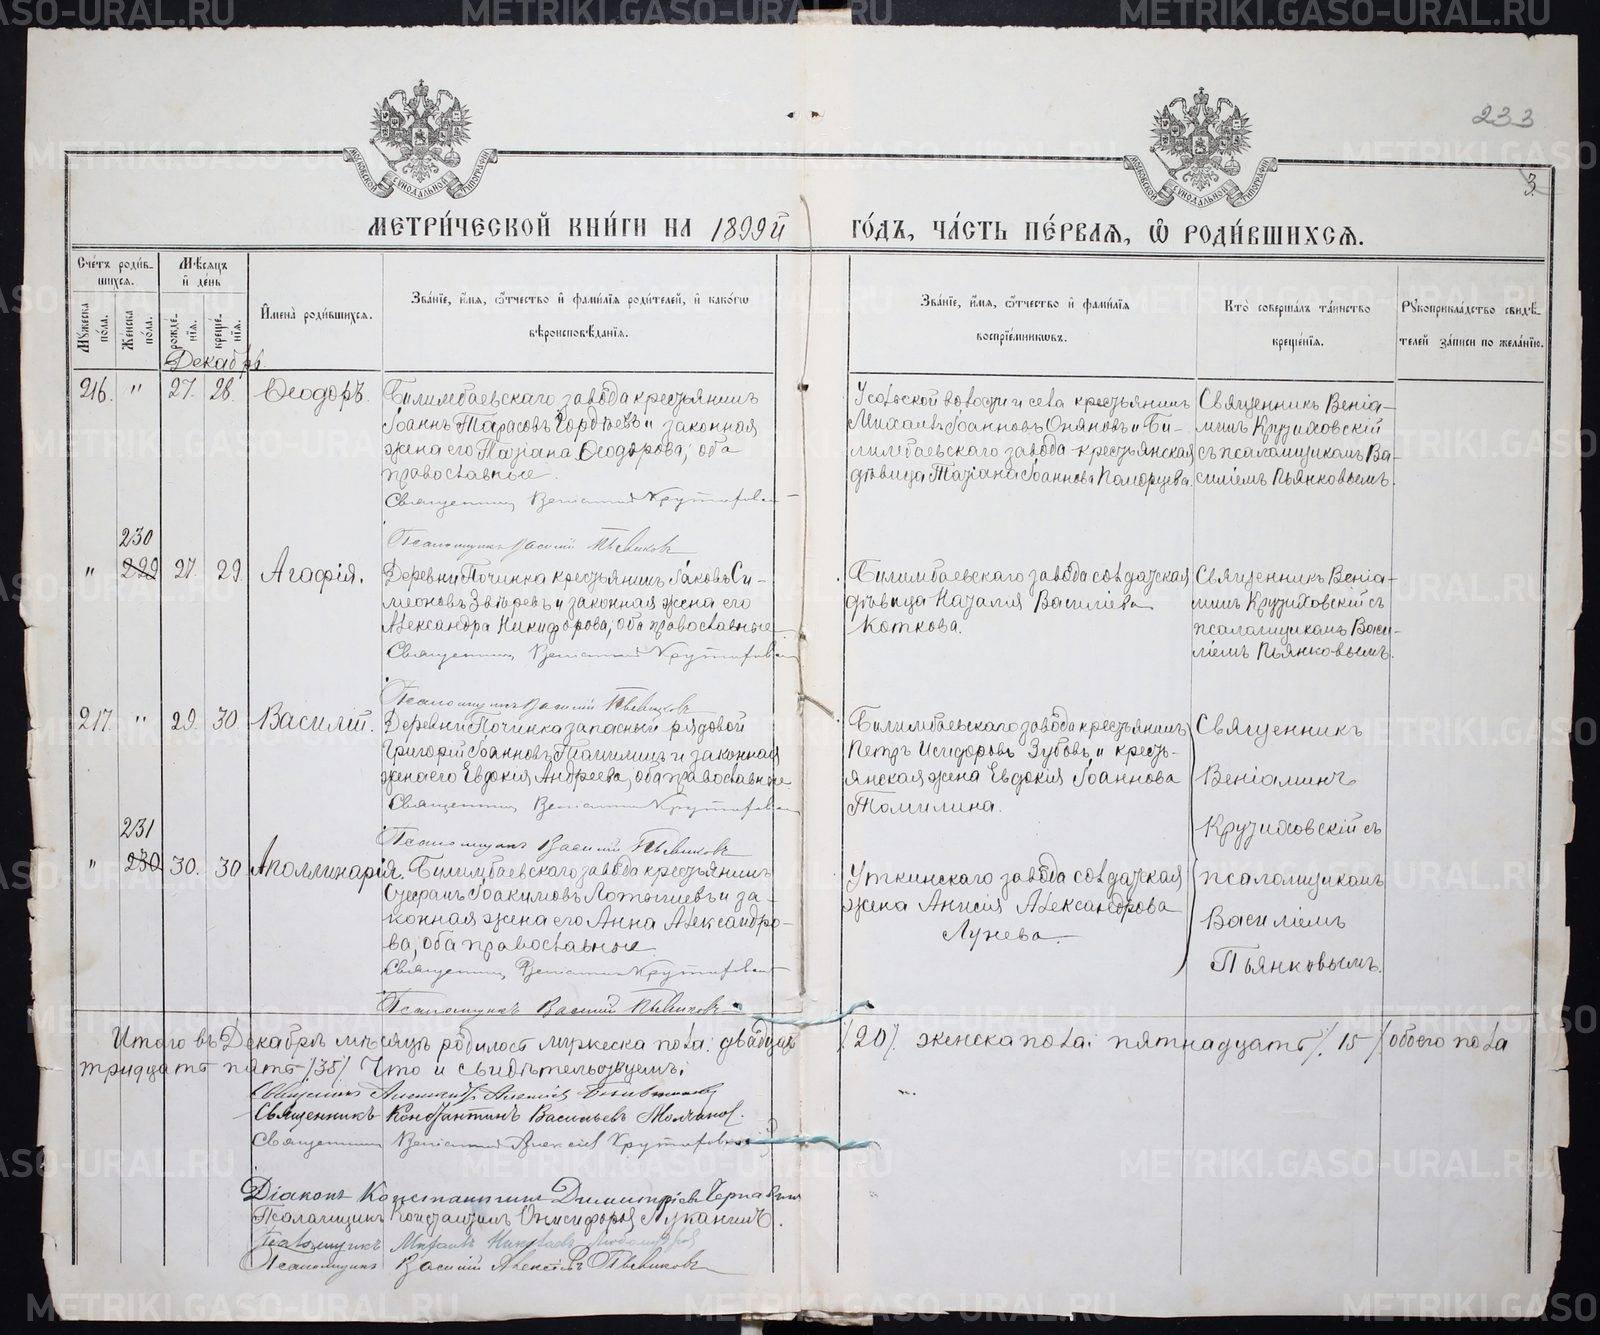 233
3.
МОСКОВСКОЙ СѴНОДАЛЬНОЙ ТИПОГРАФІИ
МОСКОВСКОЙ СѴНОДАЛЬНОЙ ТИПОГРАФІИ
МЕТРИ́ЧЕСКОЙ КНИ́ГИ НА 1899й ГО́ДЪ, ЧА́СТЬ ПЕ́РВАѦ, Ѽ РОДИ́ВШИХСѦ.
Сче́тъ роди́в-
шихся.
Мꙋжеска по́ла.
Же́нска по́ла.
Мѣ́сяцъ
и҆ де́нь
рожде́-
нїя.
креще́-
нїя.
И҆мена̀ роди́вшихся.
Зва́нїе, и҆́мя, ѻ҆́тчество и҆ фами́лїя роди́телей, и҆ како́гѡ
вѣроисповѣ́данїя.
Зва́нїе, и҆́мя, ѻ҆́тчество и҆ фами́лїя
воспрїе́мниковъ.
Кто̀ соверша́лъ та́инство
креще́нїя.
Рꙋкоприкла́дство свидѣ́-
телей за́писи по жела́нїю.
Декабрь
216. " 27. 28. Ѳеодоръ.
Билимбаевскаго завода крестьянинъ
Іоаннъ Тарасовъ Гордѣевъ и законная
жена его Татіана Ѳеодорова; оба
православные.
Священникъ Веніаминъ Крутиховскій
Псаломщикъ Василій Пьянковъ
Михаилъ Іоанновъ Оняновъ и Би-
лимбаевскаго завода крестьянская
дѣвица Татіана Іоаннова Поморцева.
Священникъ Веніа-
минъ Крутиховскій
съ псаломщикомъ Ва-
силіемъ Пьянковымъ.
230
" 229 27. 29. Агафія.
Деревни Починка крестьянинъ Іаковъ Си-
меоновъ Звѣревъ и законная жена его
Александра Никифорова; оба православные
Священникъ Веніаминъ Крутиховскій
Псаломщикъ Василій Пьянковъ
Билимбаевскаго завода солдатская
дѣвица Наталія Василіева
Коткова.
Священникъ Веніа-
минъ Крутиховскій съ
псаломщикомъ Васи-
ліемъ Пьянковымъ.
217. " 29. 30. Василій.
Деревни Починка запасный рядовой
Григорій Іоанновъ Томилинъ и законная
жена его Евдокія Андреева; оба православные
Священникъ Веніаминъ Крутиховскій
Псаломщикъ Василій Пьянковъ
Билимбаевскаго завода крестьянинъ
Петръ Исидоровъ Зубовъ и кресть-
янская жена Евдокія Іоаннова
Томилина.
Священникъ
Веніаминъ
Крутиховскій съ
псаломщикомъ
Василіемъ
Пьянковымъ.
231
" 230 30. 30 Аполлинарія.
Билимбаевскаго завода крестьянинъ
Стефанъ Іоакимовъ и за-
конная жена его Анна Александро-
ва; оба православные
Священникъ Веніаминъ Крутиховскій
Псаломщикъ Василій Пьянковъ
Уткинскаго завода солдатская
жена Анисія Александрова
Лунева.
Итого въ Декабрѣ мѣсяцѣ родилось мужеска пола: двадцать /20/. женска пола: пятнадцать /15/ обоего пола
тридцать пять /35/ Что и свидѣтельствуемъ:
Священникъ
Священникъ Константинъ Васильевъ Молчановъ.
Священникъ Веніаминъ Алексіевъ Крутиховскій
Діаконъ Константинъ Димитріевъ
Псаломщикъ Константинъ Онисифоровъ Луканинъ.
Псаломщикъ Михаилъ Николаевъ
Псаломщикъ Василій Алексѣевъ Пьянковъ
METRIKI.GASO-URAL.RU